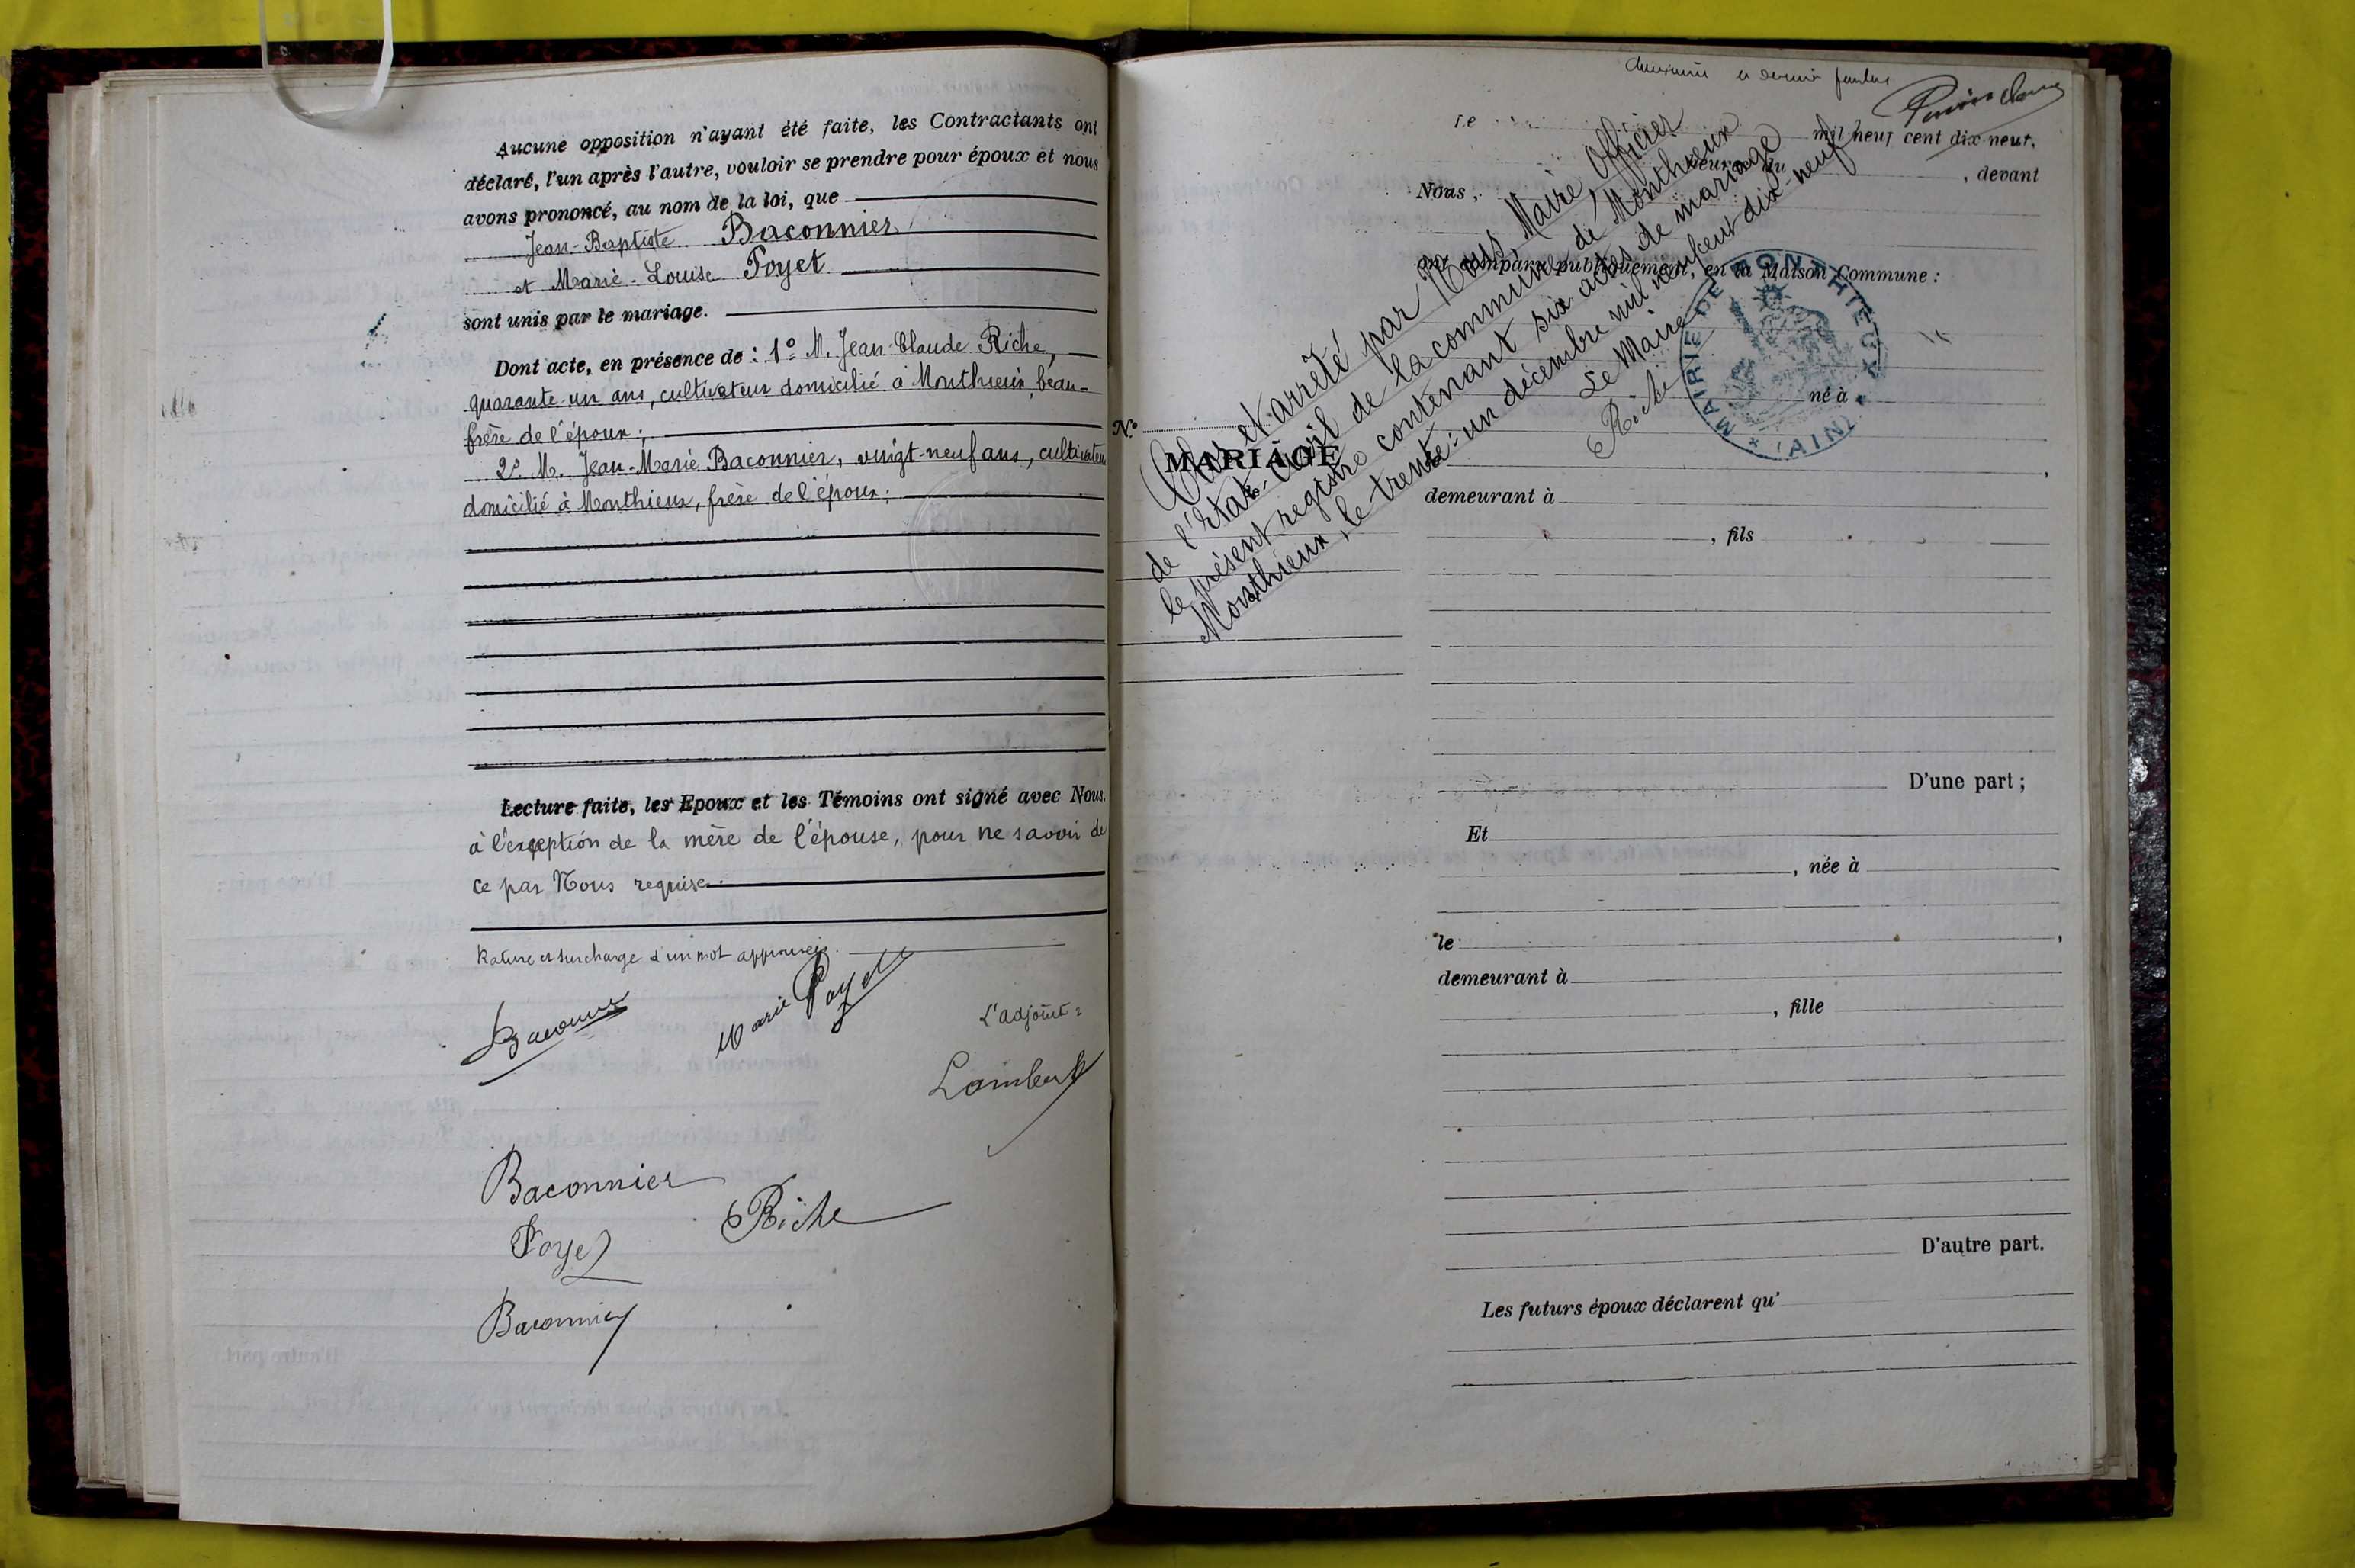 Aucune opposition n'ayant été faite, les Contractants ont
déclaré, l'un après l'autre, vouloir se prendre pour époux et nous
avons prononcé, au nom de la loi, que
Jean-Baptiste Baconnier
et Marie-Louise Poyet
sont unis par le mariage.
Dont acte, en présence de : 1º M. Jean Claude Riche,
quarante-un ans, cultivateur domicilié à Monthieux, beau-
frère de l'époux;
2º M. Jean-Marie Baconnier, vingt-neuf ans, cultivateur
domicilié à Monthieux, frère de l'époux;
Lecture faite, les Epoux et les Témoins ont signé avec Nous.
à l'exception de la mère de l'épouse, pour ne savoir de
ce par Nous requise.
Rature et surcharge d'un mot approuvées.
Baconnier
Marie Poyet
L'adjoint:
Lambert
Baconnier
Riche
Poyet
Baconnier
deuxième et dernier
Le
mil neuf cent dix neuf,
heure du
, devant
Nous,
ont comparu publiquement, en la Maison Commune :
Clos et arrêté par Nous, Maire Officier
de l'Etat-Civil de la commune de Monthieux
le présent registre contenant six actes de mariage
Monthieux, le trente-un décembre mil neuf cent dix-neuf
Le Maire
Riche
MAIRIE DE MONTHIEUX
(AIN)
né à
Nº
MARIAGE
demeurant à
, fils
D'une part ;
Et
, née à
le
,
demeurant à
, fille
D'autre part.
Les futurs époux déclarent qu'